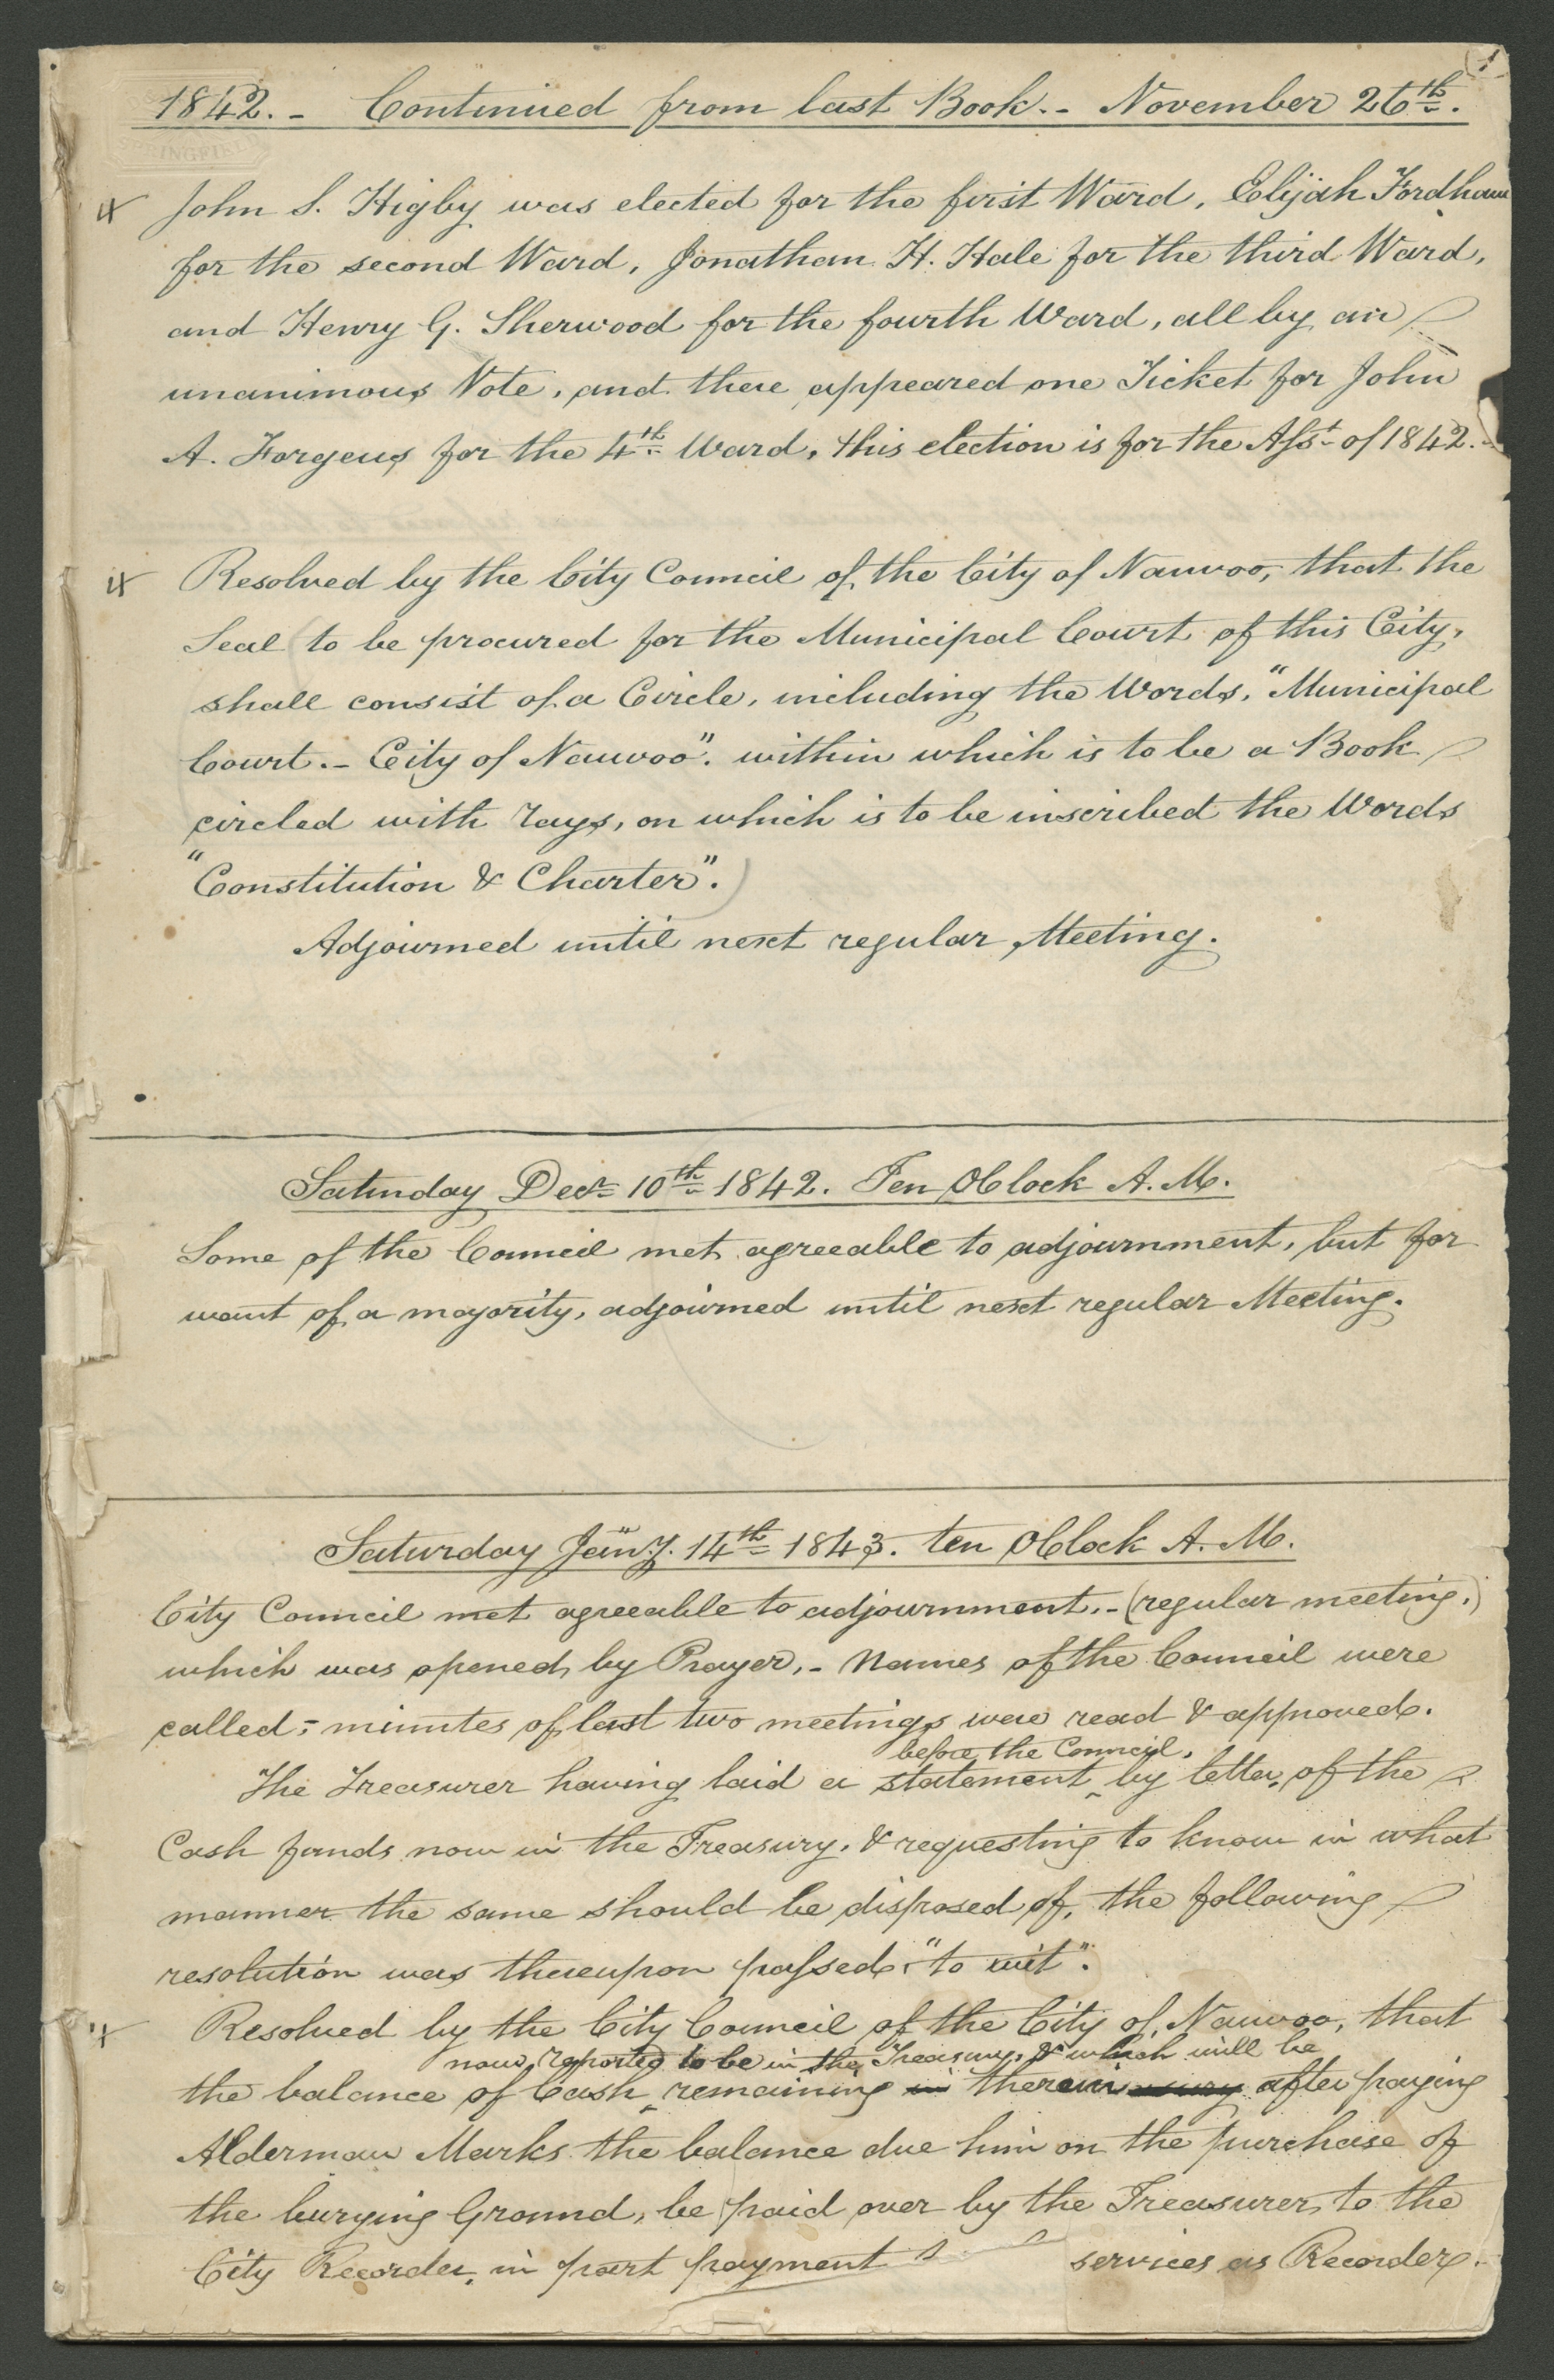 1
1842. - Continued from last Book. - November 26th.
John S. Higby was elected for the first Ward, Elijah Fordham
for the second Ward, Jonathan H. Hale for the third Ward,
and Henry G. Sherwood for the fourth Ward, all by an
unanimous Vote, and there appeared one Ticket for John
A. Forgeus for the 4th Ward, this election is for the Asst. of 1842. -
Resolved by the City Council of the City of Nauvoo, that the
Seal (to be procured for the Municipal Court of this City,
shall consist of a Circle, including the Words, "Municipal
Court. - City of Nauvoo". within which is to be a Book
circled with rays, on which is to be inscribed the Words
"Constitution & Charter".)
Adjourned until next regular Meeting.
Saturday Decr. 10th 1842. Ten OClock A. M.
Some of the Council met agreeable to adjournment, but for
want of a majority, adjourned until next regular Meeting.
Saturday Jany. 14th 1843. ten OClock A. M.
City Council met agreeable to adjournment. - (regular meeting.)
which was opened by Prayer, - Names of the Council were
called; - minutes of last two meetings were read & approved.
before the Council,
The Treasurer having laid a statement ^ by letter, of the
Cash funds now in the Treasury, & requesting to know in what
manner the same should be disposed of, the following
resolution was thereupon passed, "to wit".
Resolved by the City Council of the City of Nauvoo, that
now reported to be in the Treasury, & which will be
the balance of Cash ^ remaining in therein after paying
Alderman Marks the balance due him on the purchase of
the burying Ground, be paid over by the Treasurer, to the
City Recorder, in part payment services as Recorder. -